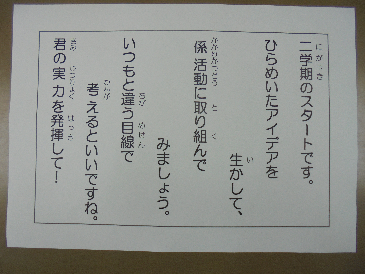 二学期のスタートです。
ひらめいたアイデアを
生かして、
係活動に取り組んで
みましょう。
いつもと違う目線で
考えるといいですね。
君の実力を発揮して!